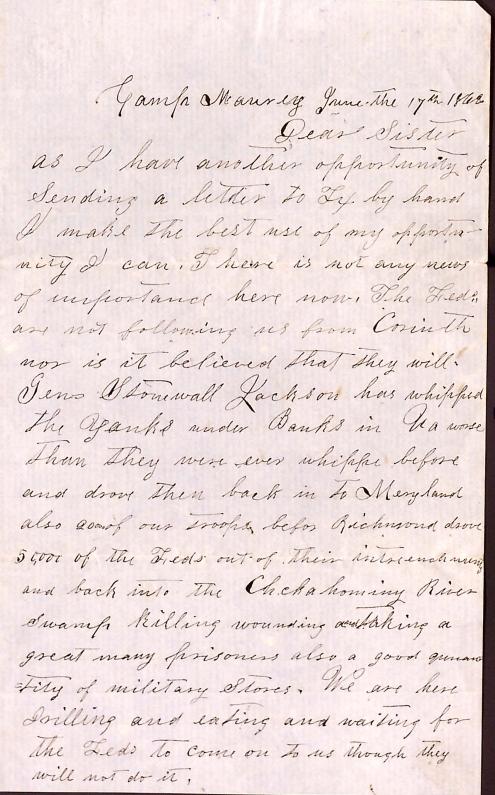 Camp Maurey June the 17th 1862
Dear Sister
as I have another opportunity of
Sending a letter to Tx. by hand
I make the best use of my opportu-
nity I can. There is not any news
of importance here now. The Feds
are not following us from Corinth
nor is it believed that they will.
Gens Stonewall Jackson has whipped
the Yanks under Banks in Va worse
than they were ever whippe before
and drove then back in to Meryland
also of our troops befor Richmond drove
of the Feds out of their intreenchments
and back into the Chckahominy River
Swamp Killing wounding and taking a
great many prisoners also a good quean
=tity of military Stores. We are here
Drilling and eating and waiting for
the Feds to come on to us though they
will not do it.